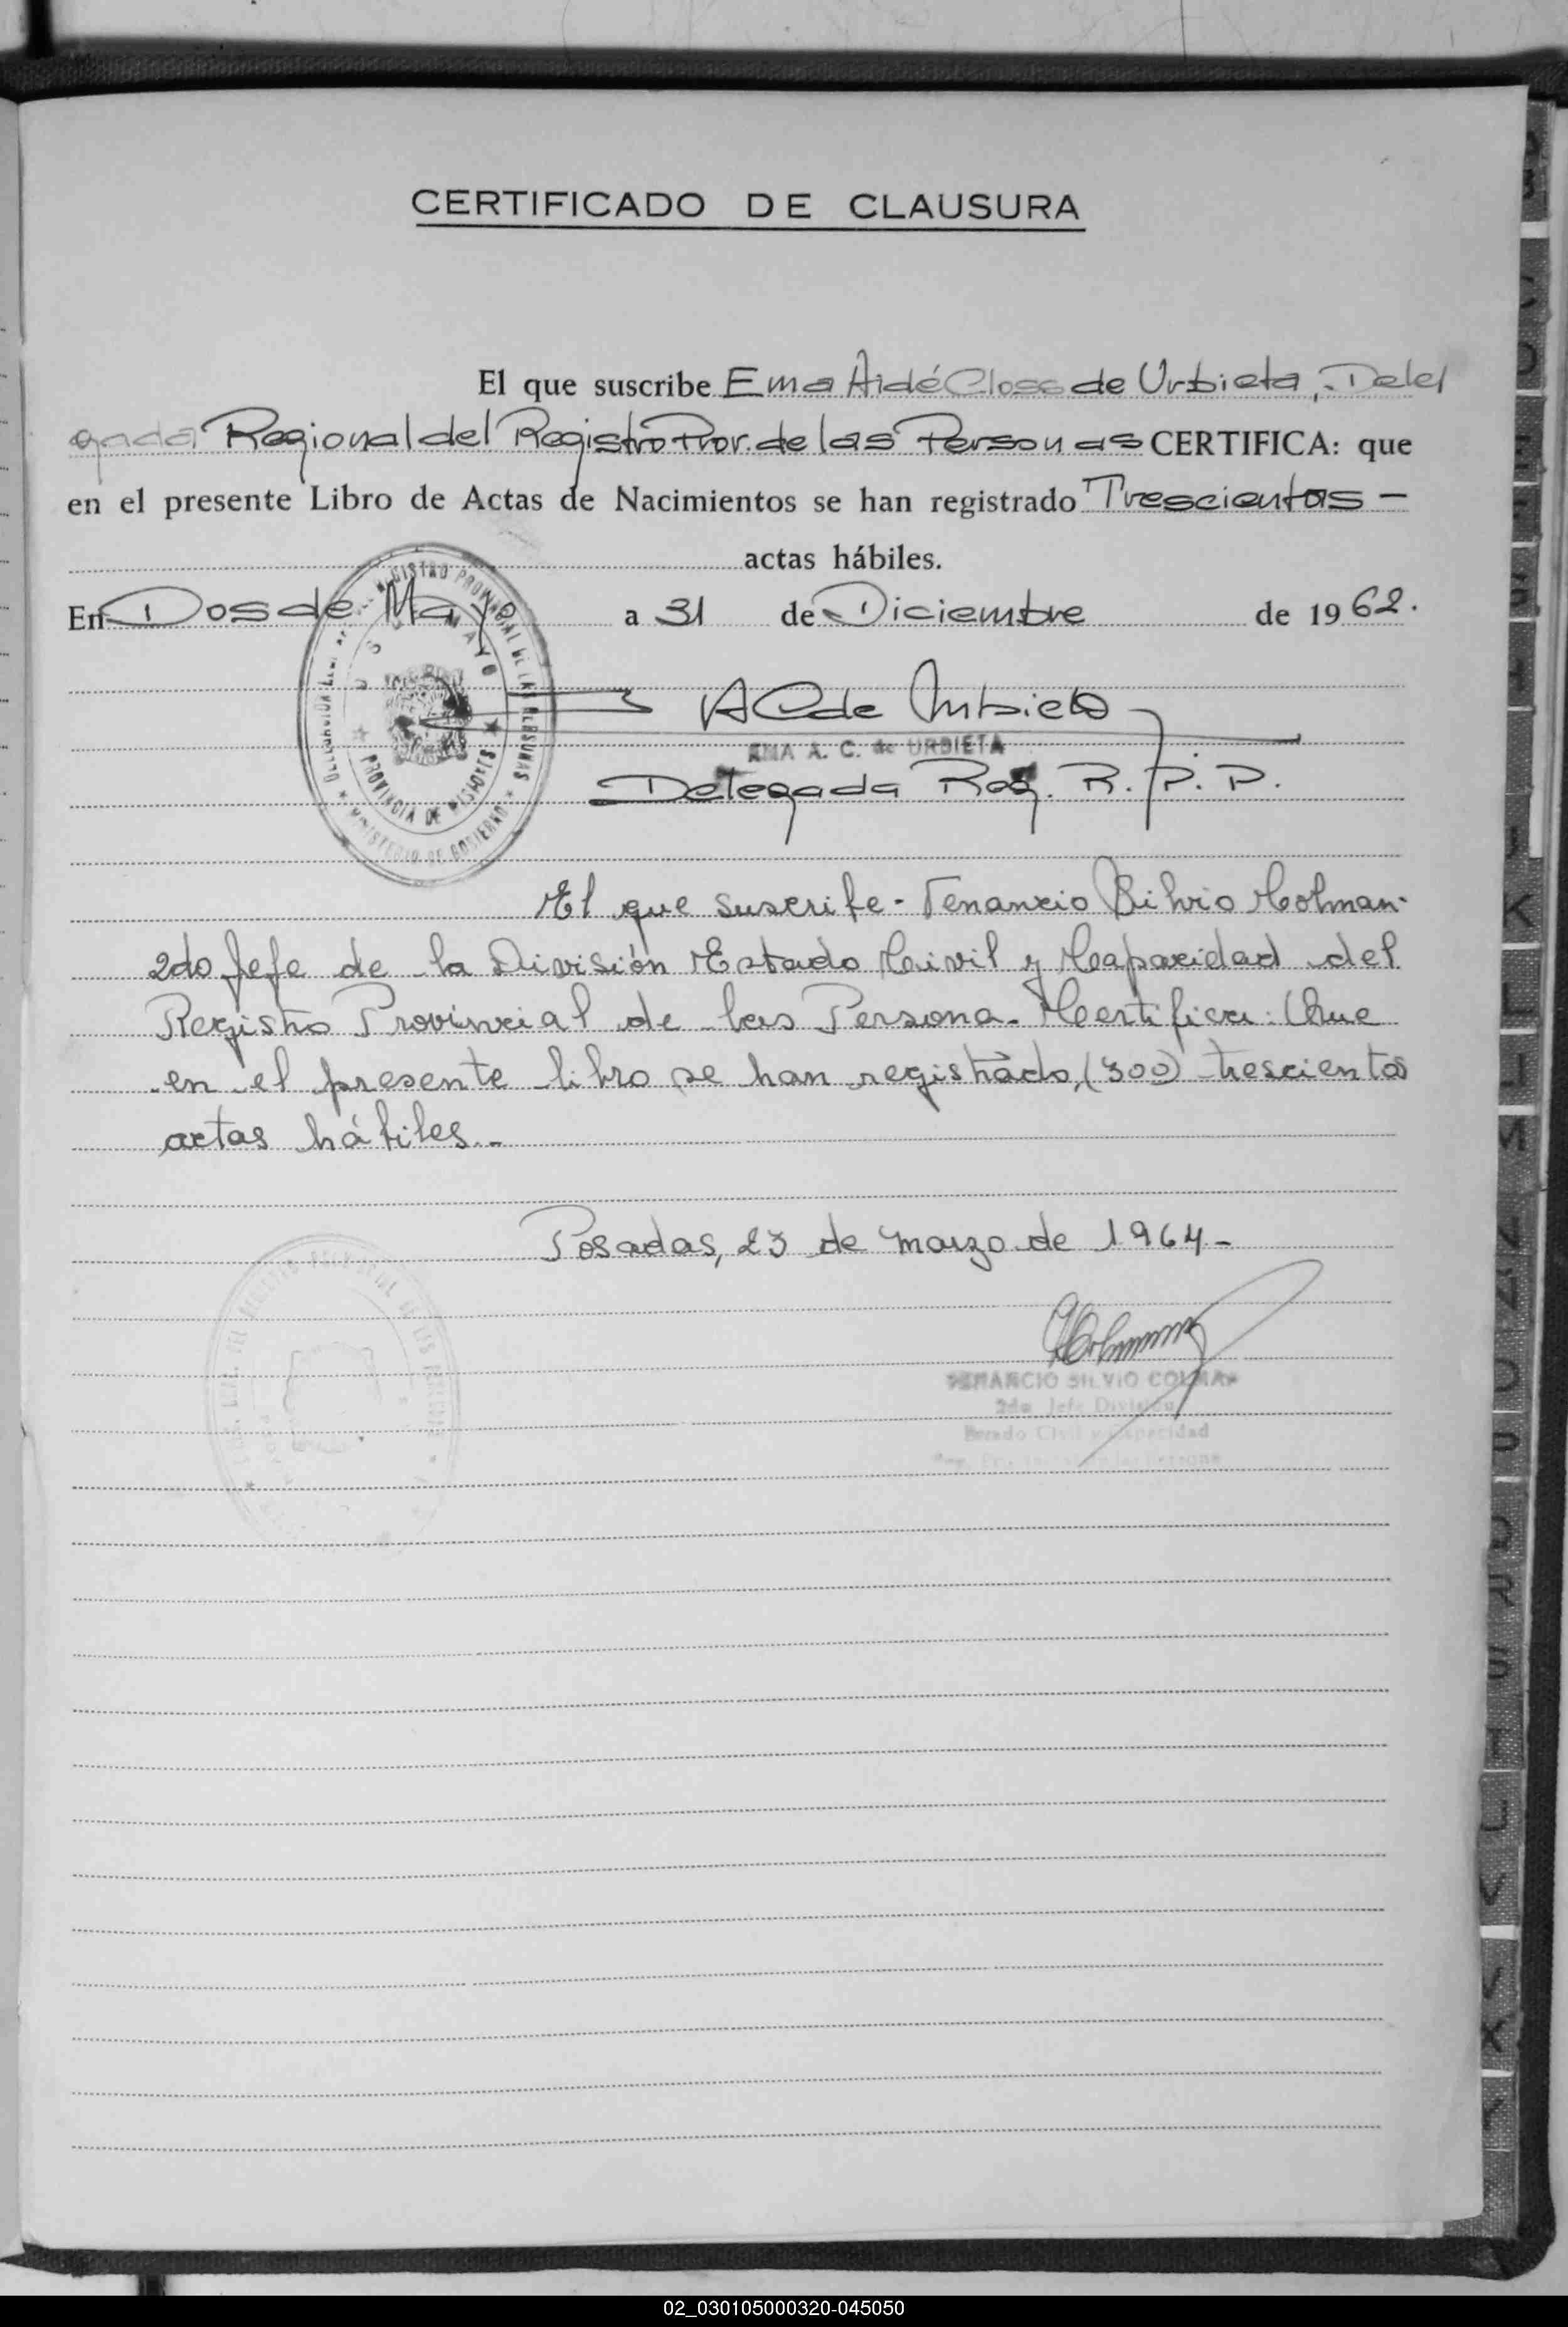 CERTIFICADO DE CLAUSURA
El que suscribe Ema Aidé Closs de Urbieta, Dele
gada Regional del Registro Prov. de las Personas CERTIFICA: que
en el presente Libro de Actas de Nacimientos se han registrado Trescientas -
actas hábiles.
En Dos de Mayo a 31 de Diciembre de 1962.
A C de Urbieta
EMA A. C. de URBIETA
Delegada Reg. R. P. P.
REGISTRO PROVINCIAL DE LAS PERSONAS
MAYO
PROVINCIA DE MISIONES
MINISTERIO DE GOBIERNO
El que suscribe - Venancio Silvio Colman-
2do Jefe de la División Estado Civil y Capacidad del
Registro Provincial de las Persona. Certifica: Que
en el presente libro se han registrado, (300) trescientas
actas hábiles.-
Posadas, 23 de marzo de 1964-
Colman
VENANCIO SILVIO COLMAN
2do Jefe División
Estado Civil y Capacidad
K
L
M
02_030105000320-045050